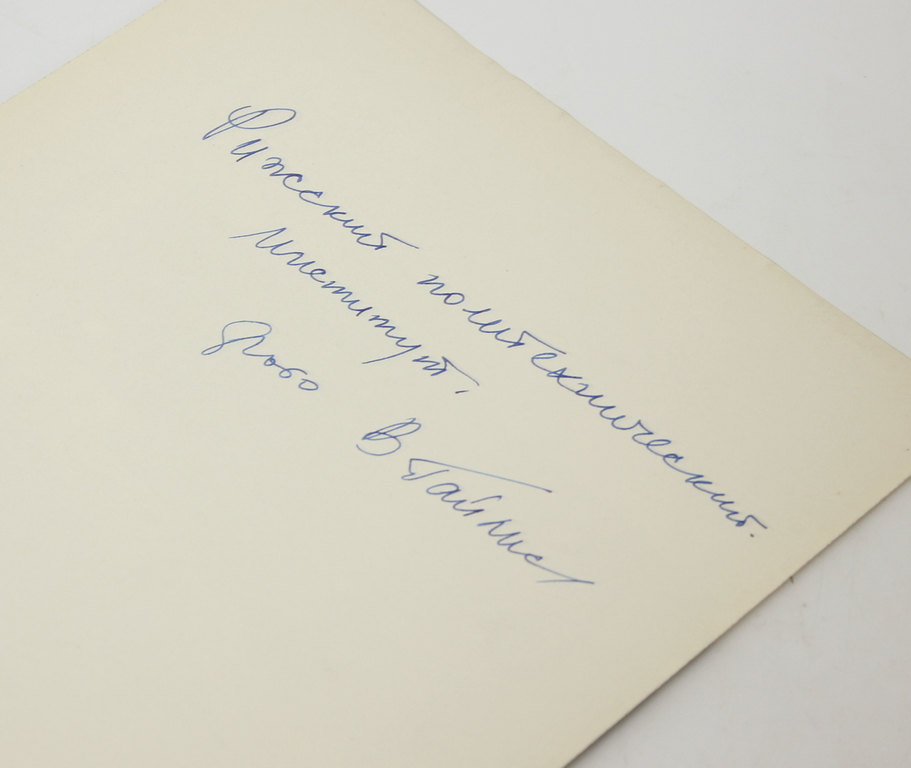 Рижский политехнический.
Институт.
В Гайлис